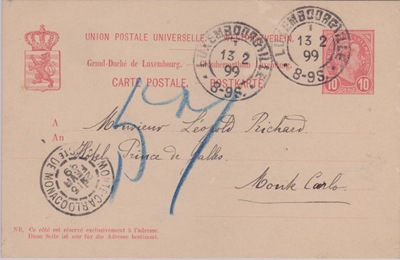 UNION POSTALE UNIVERSELLE.
Grand-Duché de Luxembourg.
CARTE POSTALE. POSTKARTE
LUXEMBOURG-VILLE
13 2
99
8-9S
LUXEMBOURG-VILLE
13 2
99
8-9S
10 10
A
An
Monsieur Léopold Richard
Hôtel Prince de Galles
Monte Carlo.
57
MONTE-CARLO
PTE DE MONACO
NB. Ce côté est réservé exclusivement à l'adresse
Diese Seite ist nur für die Adresse bestimmt.